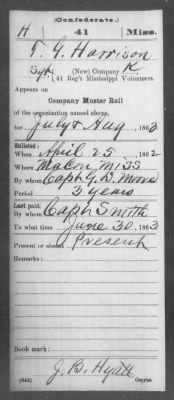 (Confederate.)
H 41 Miss.
T. G. Harrison
Sgt, (New) Company K,
41 Reg't Mississippi Volunteers.
Appears on
Company Muster Roll
of the organization named above,
for July & Aug, 1863
Enlisted:
When April 25, 1862
Where Macon, Miss
By whom Capt G. D. Moore
Period 3 years
Last paid:
By whom Capt Smith
To what time June 30, 1863
Present or absent Present
Remarks:
Book mark:
G. B. Hyatt
(642) Copyist.